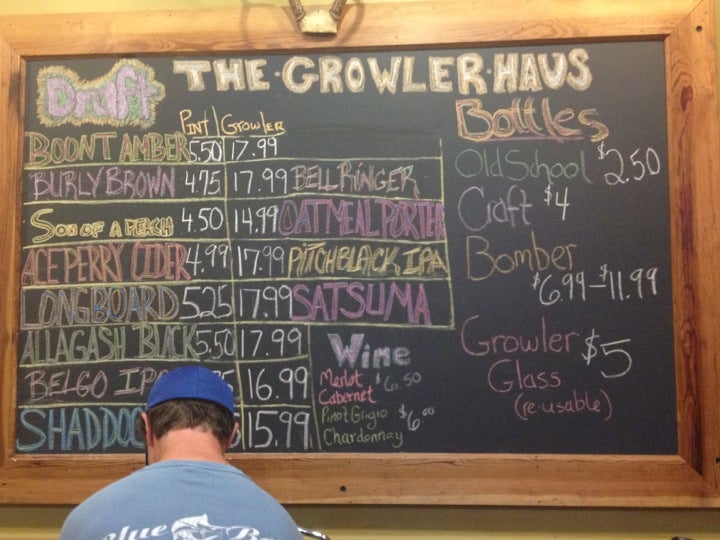 Draft THE GROWLER HAUS
PINT GROWLER
BOONT AMBER 5.50 17.99
BURLY BROWN 4.75 17.99 BELL RINGER
SON OF A PEACH 4.50 14.99 OATMEAL PORTER
ACE PERRY CIDER 4.99 17.99 PITCHBLACK IPA
LONGBOARD 5.25 17.99 SATSUMA
ALLAGASH BLACK 5.50 17.99
BELGO IPA 16.99
SHADDOC 15.99
Wine
Merlot $6.50
Cabernet
Pinot Grigio $6.00
Chardonnay
Bottles
Old School $2.50
Craft $4
Bomber
$6.99-$11.99
Growler $5
Glass
(re-usable)
Blue